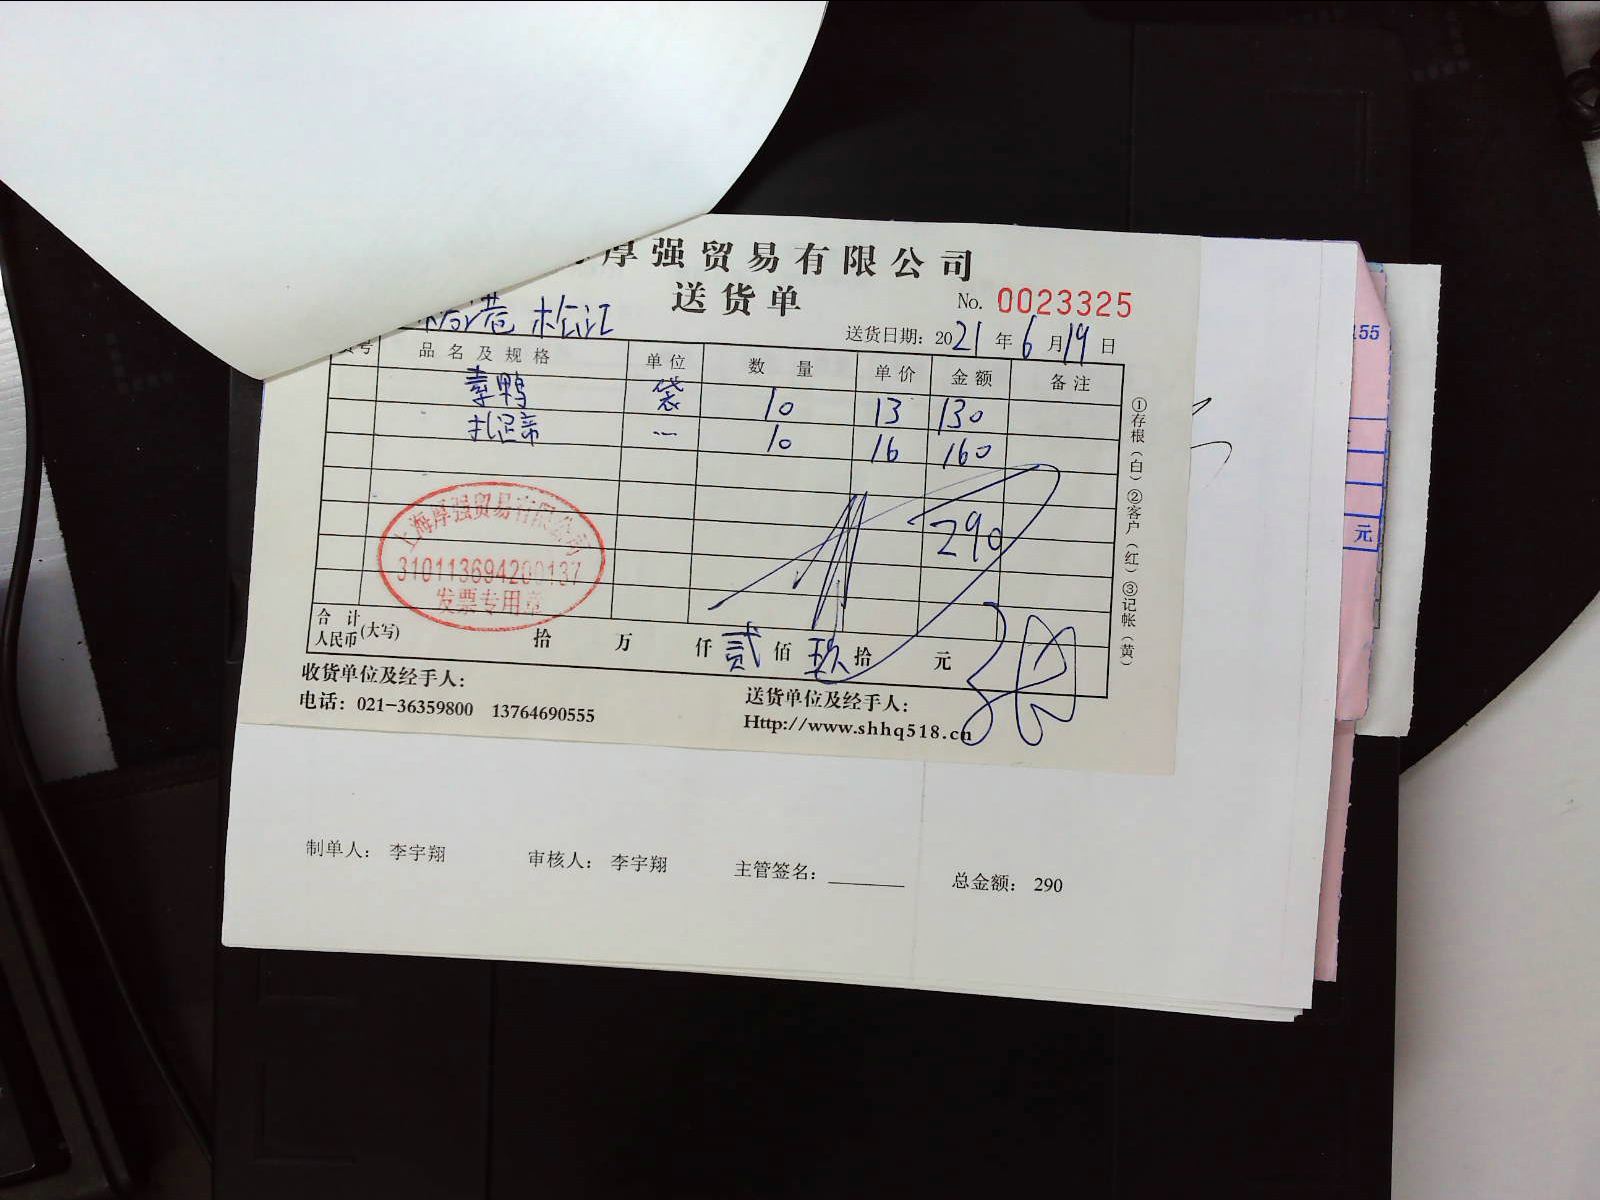 厚强贸易有限公司
送货单
No. 0023325
港 松江
送货日期: 2021 年 6 月 19 日
号 品名及规格 单位 数量 单价 金额 备注
素鸭 袋 10 13 130
扎蹄 10 16 160
290
上海厚强贸易有限公司
310113694200137
发票专用章
合计人民币(大写) 拾 万 仟 贰 佰 玖 拾 元
收货单位及经手人:
送货单位及经手人:
电话: 021-36359800 13764690555
Http://www.shhq518.cn
①存根(白) ②客户(红) ③记帐(黄)
155
元
制单人: 李宇翔 审核人: 李宇翔 主管签名: 总金额: 290